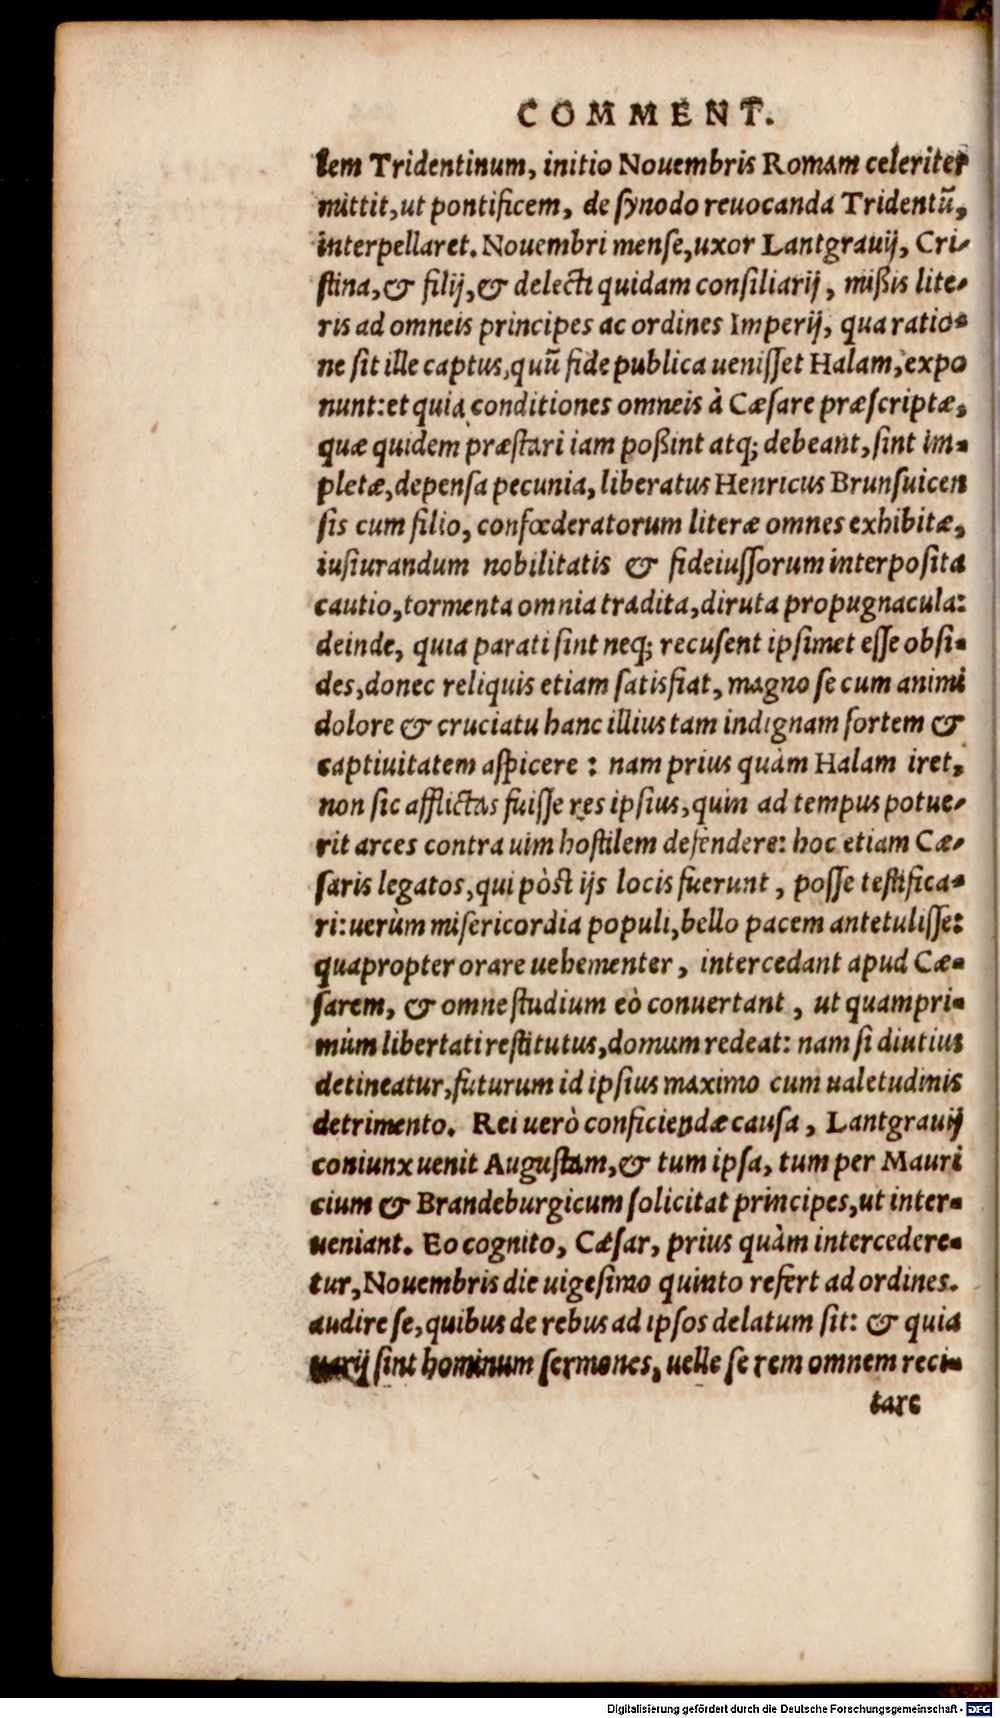 COMMENT.
lem Tridentinum, initio Nouembris Romam celeriter
mittit, ut pontificem, de synodo reuocanda Tridentũ,
interpellaret. Nouembri mense, uxor Lantgrauij, Cri-
stina, & filij, & delecti quidam consiliarij, mißis lite-
ris ad omneis principes ac ordines Imperij, qua ratio-
ne sit ille captus, quũ fide publica uenisset Halam, expo
nunt: et quia conditiones omneis à Cæsare præscriptæ,
quæ quidem præstari iam poßint atq; debeant, sint im-
pletæ, depensa pecunia, liberatus Henricus Brunsuicen
sis cum filio, confœderatorum literæ omnes exhibitæ,
iusiurandum nobilitatis & fideiussorum interposita
cautio, tormenta omnia tradita, diruta propugnacula:
deinde, quia parati sint neq; recusent ipsimet esse obsi-
des, donec reliquis etiam satisfiat, magno se cum animi
dolore & cruciatu hanc illius tam indignam sortem &
captiuitatem aspicere : nam prius quàm Halam iret,
non sic afflictas fuisse res ipsius, quin ad tempus potue-
rit arces contra uim hostilem defendere: hoc etiam Cæ-
saris legatos, qui pòst ijs locis fuerunt, posse testifica-
ri: uerùm misericordia populi, bello pacem antetulisse:
quapropter orare uehementer, intercedant apud Cæ-
sarem, & omne studium eò conuertant, ut quampri-
mùm libertati restitutus, domum redeat: nam si diutius
detineatur, futurum id ipsius maximo cum ualetudinis
detrimento. Rei uerò conficiendæ causa, Lantgrauij
coniunx uenit Augustam, & tum ipsa, tum per Mauri
cium & Brandeburgicum solicitat principes, ut inter-
ueniant. Eo cognito, Cæsar, prius quàm intercedere-
tur, Nouembris die uigesimo quinto refert ad ordines.
audire se, quibus de rebus ad ipsos delatum sit: & quia
uarij sint hominum sermones, uelle se rem omnem reci-
tare
Digitalisierung gefördert durch die Deutsche Forschungsgemeinschaft - DFG